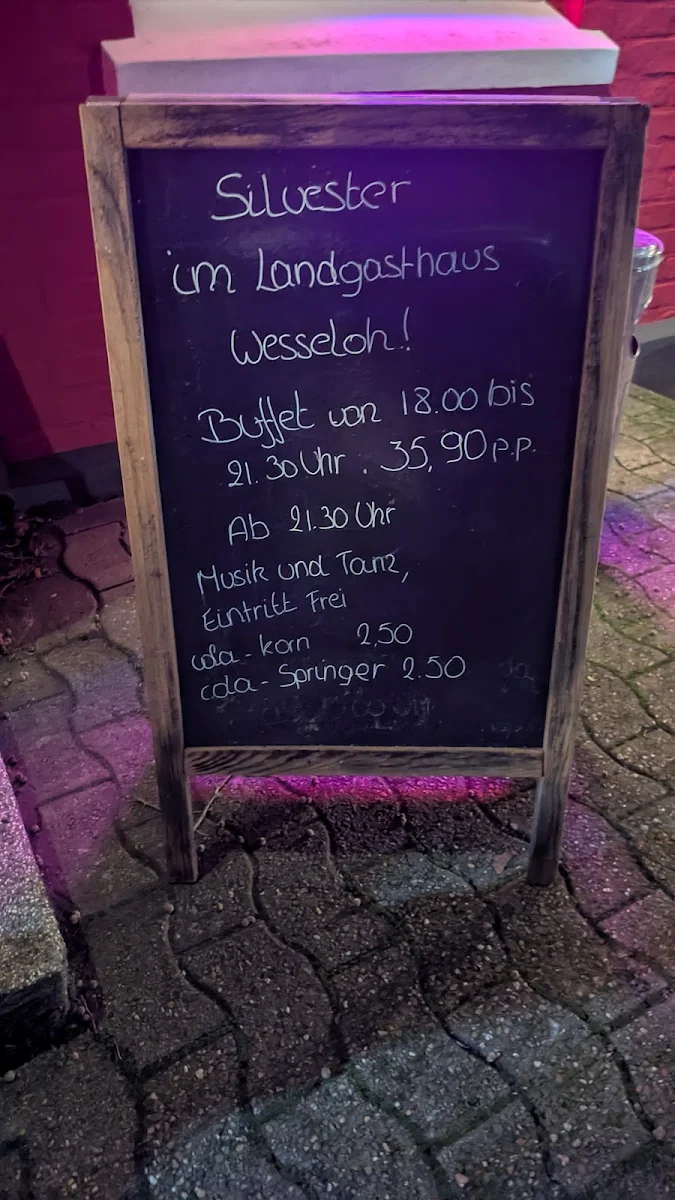 Silvester
im Landgasthaus
Wesseloh!
Buffet von 18.00 bis
21.30 Uhr . 35,90 p.p.
Ab 21.30 Uhr
Musik und Tanz,
Eintritt Frei
cola - korn 2,50
cola - Springer 2.50